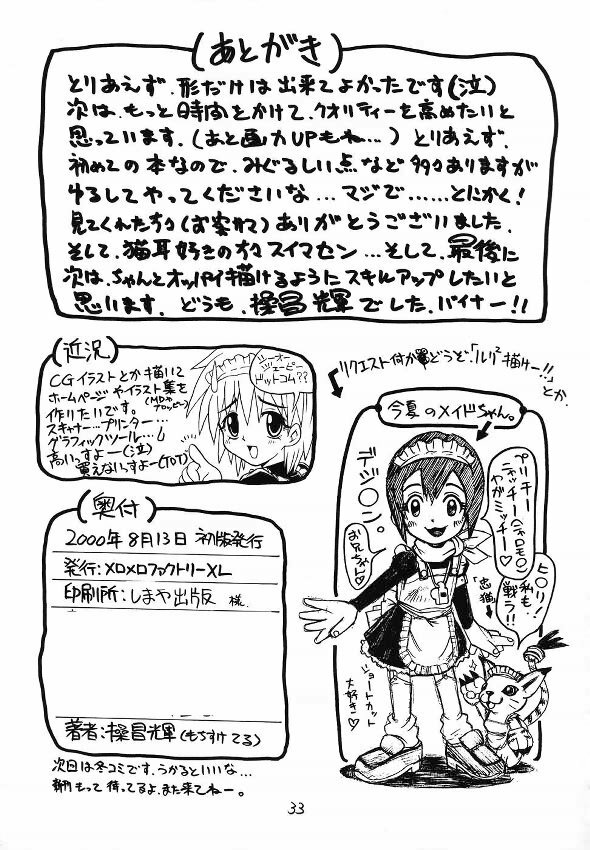 （あとがき）
とりあえず、形だけは出来てよかったです（泣）
次は、もっと時間をかけて、クオリティーを高めたいと
思っています、（あと画力UPもね…）とりあえず、
初めての本なので、みぐるしい点など多々ありますが
ゆるしてやってくださいな…マジで……とにかく！
見てくれた方々（お客様）ありがとうございました、
そして、猫耳好きの方々スイマセン…そして、最後に
次は、ちゃんとオッパイ描けるようにスキルアップしたいと
思います、どうも、操昌輝でした、バイナー！！
（近況）
CGイラストとか描いて
ホームページやイラスト集を
作りたいです。
スキャナー…プリンター…
グラフィックツール…
高いっすよー（泣）
買えないっすよー（ToT）
ジーオー
ジェーピー
ドットコム？？
リクエスト何か
どうぞ、「ルリルリ描けー！！」
とか、
今夏のメイドちゃん。
デジ〇ン。
プリチー
ニャッチー（ニャロモ〇）
やがミッチー♡
お兄ちゃん♡
ヒ〇リ！
私も
戦う！！
「忠猫」
ショートカット
大好き♡
（奥付）
2000年8月13日 初版発行
発行：メロメロファクトリーXL
印刷所：しまや出版 様
著者：操昌輝（もちすけてる）
次回は冬コミです、うかるといいな…
待ってるよ、また来てねー。
33